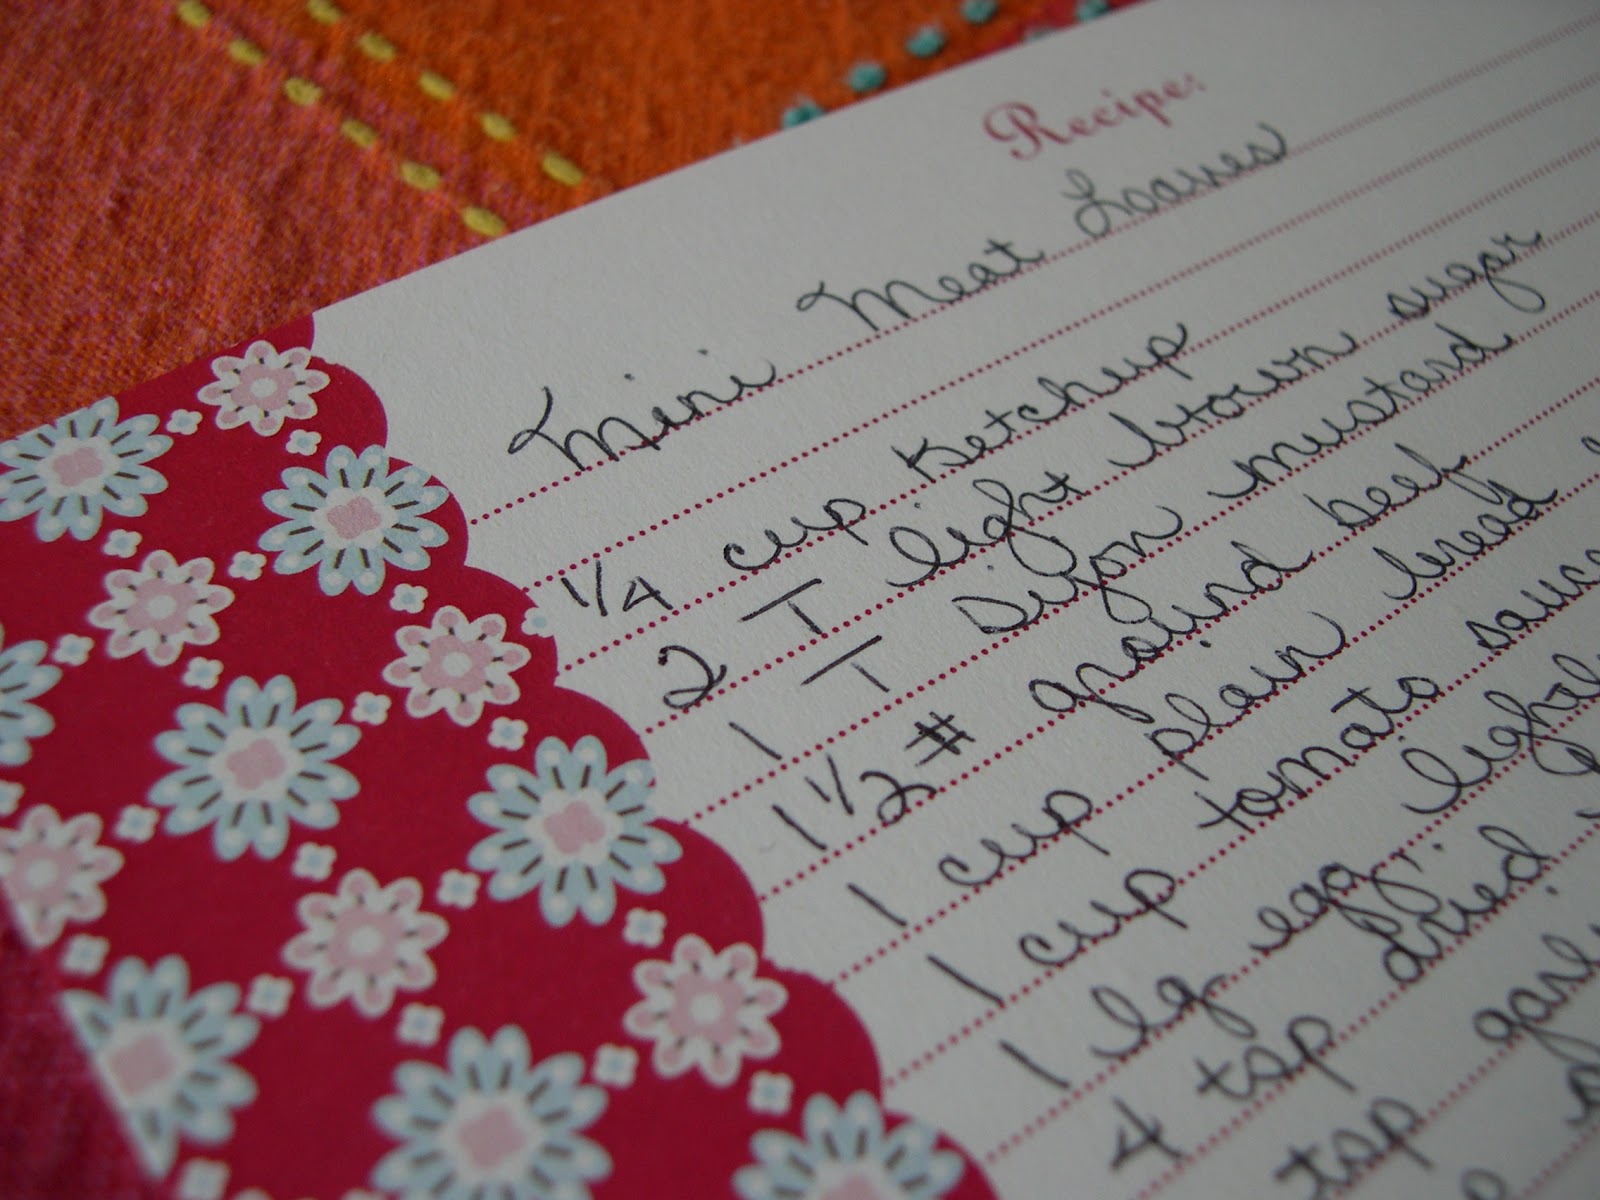 Recipe:
Mini Meat Loaves
1/4 cup Ketchup
2 T light brown sugar
1 T Dijon mustard
1 1/2 # ground beef
1 cup plain bread
1 cup tomato sauce
1 lg egg, 
4 tsp dried
tsp